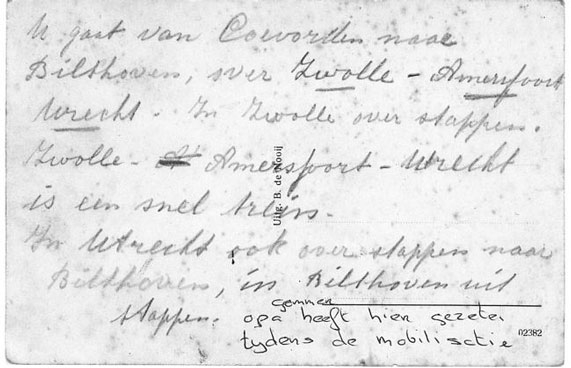 U gaat van Coevorden naar
Bilthoven, over Zwolle - Amersfoort
Utrecht. In Zwolle over stappen.
Zwolle - Amersfoort - Utrecht
is een snel trein.
In Utrecht ook over stappen naar
Bilthoven, in Bilthoven uit
stappen.
Uitg. B. de Nooij
opa heeft hier gezeten
tydens de mobilisatie
02382